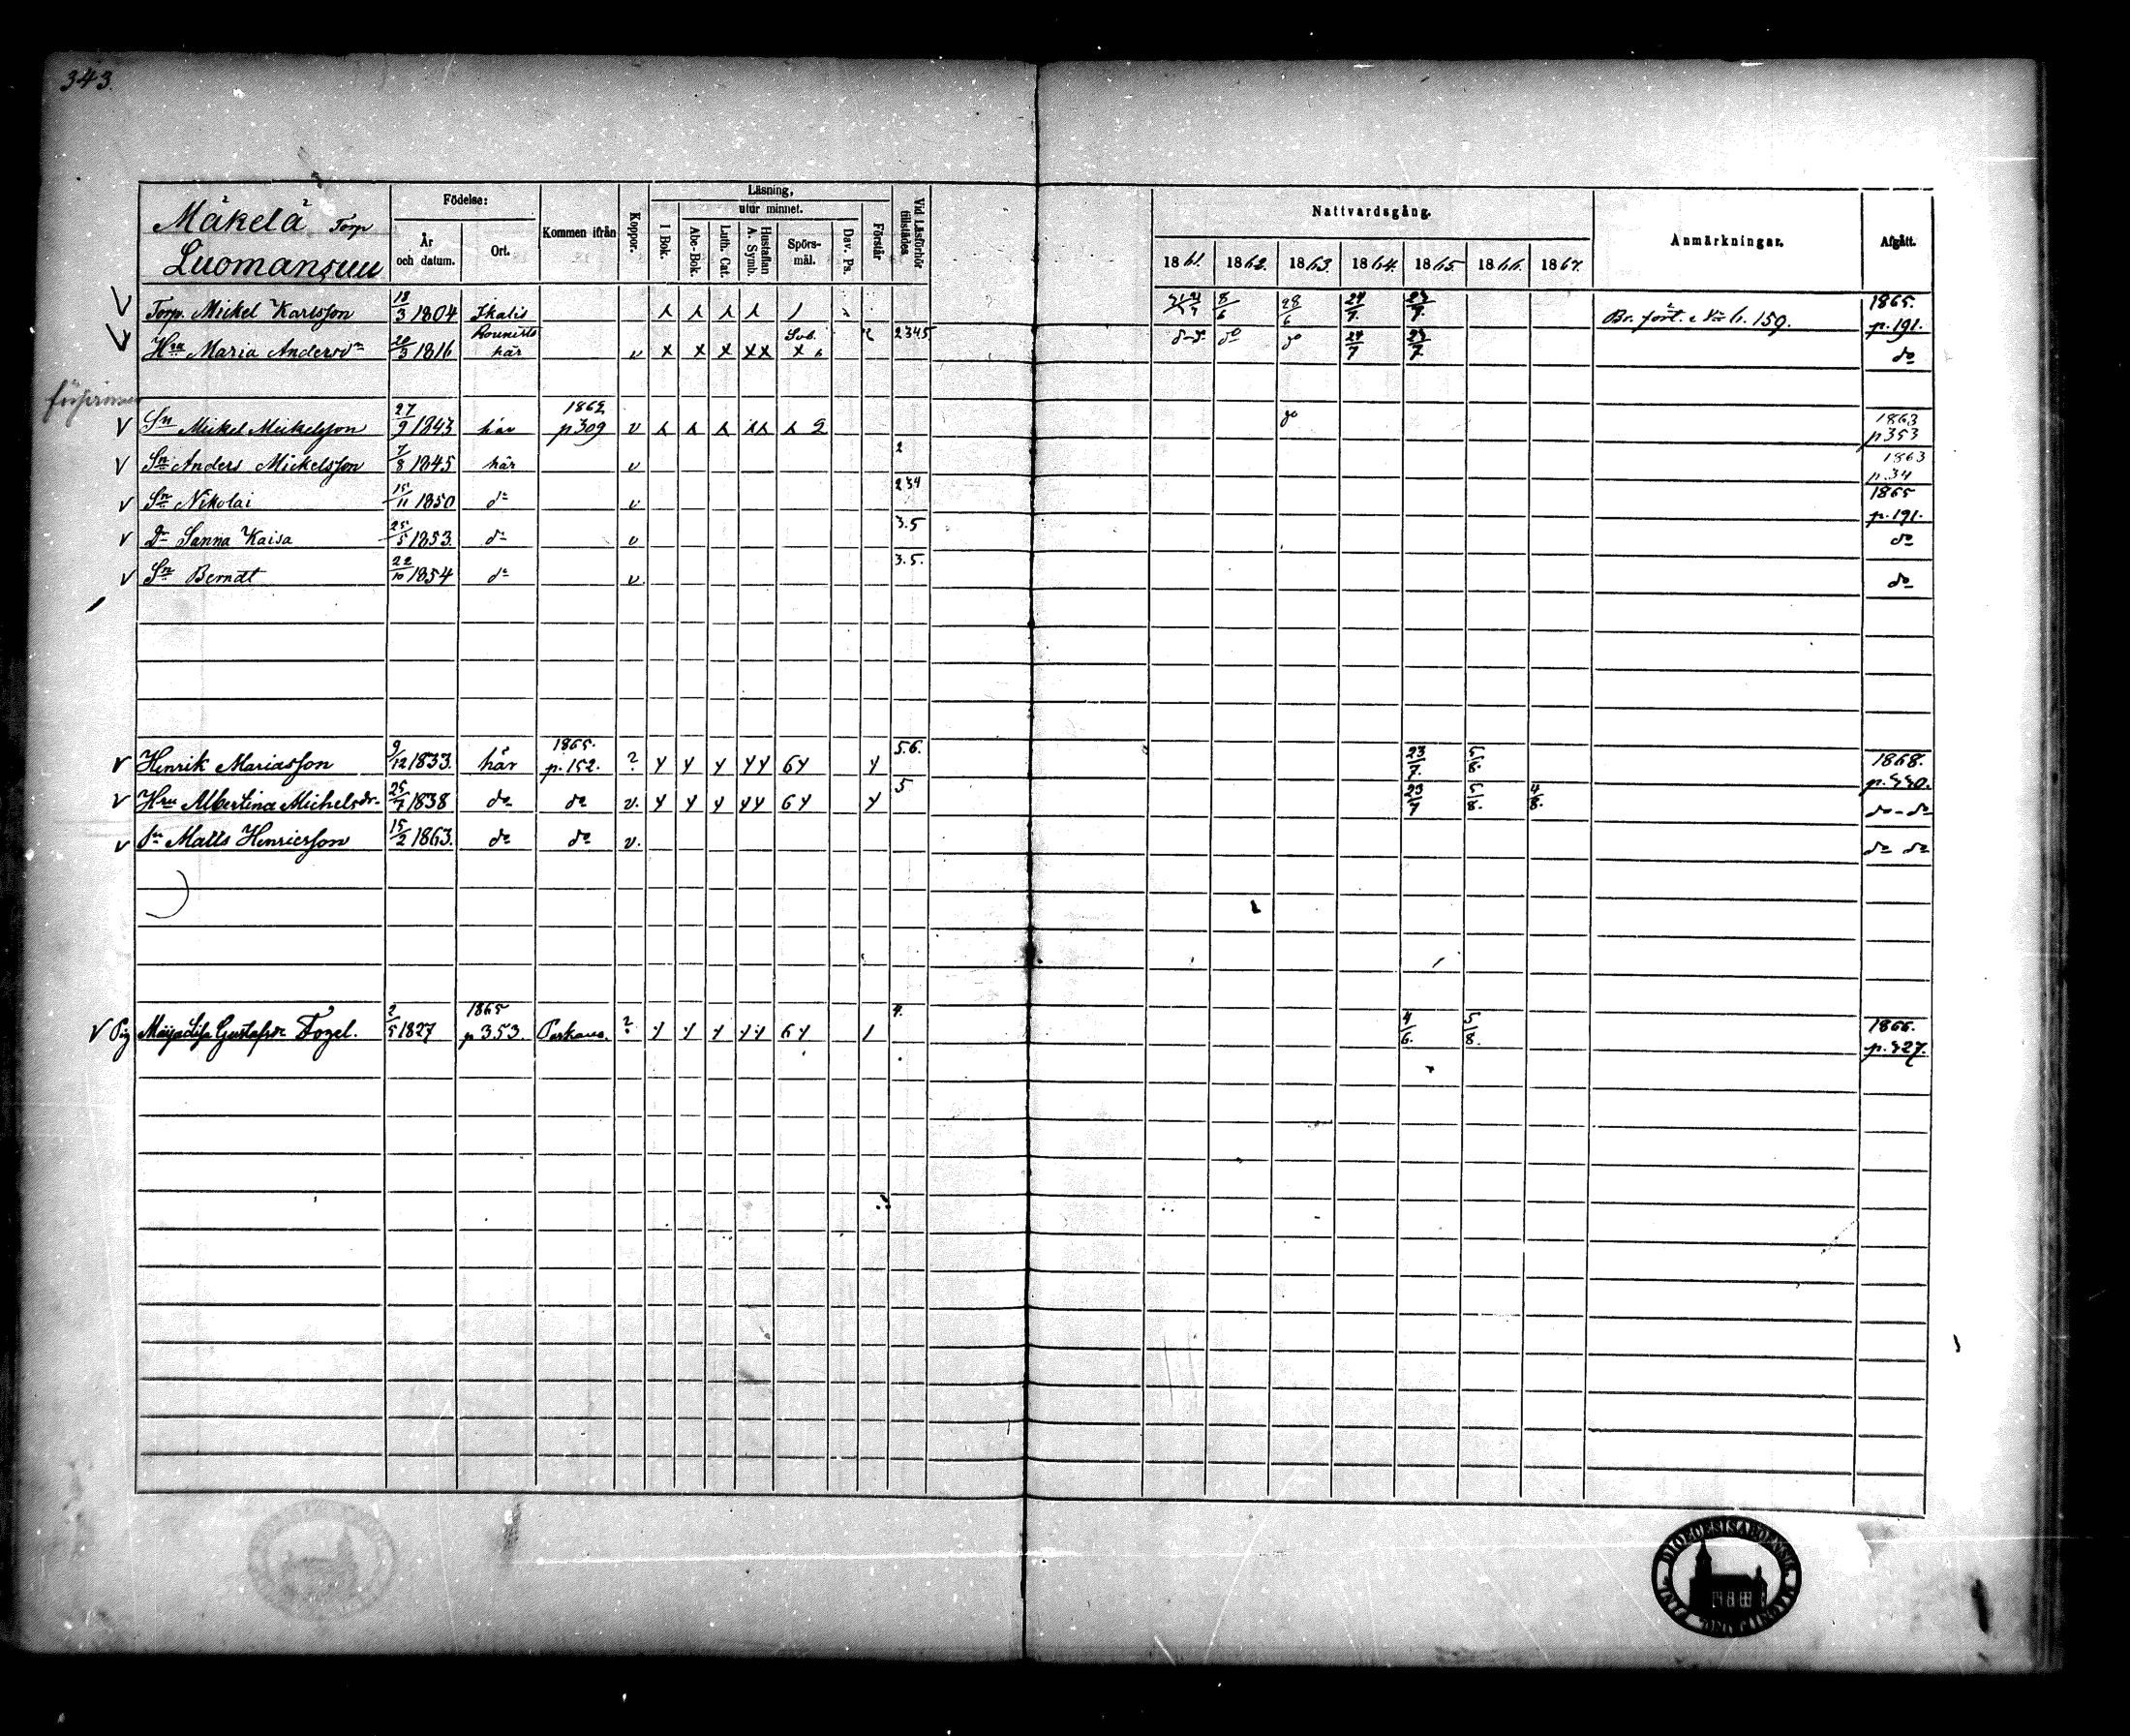 343.
Mäkelä Torp
Luomansuu
Födelse:
År och datum.
Ort.
Kommen ifrån
Koppor.
Läsning,
utur minnet.
I Bok.
Abc-Bok.
Luth. Cat.
Hustaflan A. Symb.
Spörs-mål.
Dav. Ps.
Förstår
Vid Läsförhör tillstädes.
Nattvardsgång.
1861. 1862. 1863. 1864. 1865. 1866. 1867.
Anmärkningar.
Afgått.
Torp. Mickel Karlsson 18/3 1804 Ikalis 8/6 28/6 24/7 23/7 1865. p. 191.
Hru Maria Andersdr 20/3 1816 här v x x x xx x 2345 do do 24/7 23/7 do
Sn Mickel Mickelsson 27/9 1843 här p309 v 2 do 1863 p353
Sn Anders Mickelsson 7/8 1845 här v 2 1863 p. 34
Sn Nikolai 15/11 1850 do v 234 1865 p. 191.
Dr Sanna Kaisa 25/5 1853. do v 3.5 do
Sn Berndt 22/10 1854 do v 3.5. do
Henrik Mariasson 9/12 1833. här 1865. p. 152. ? y y y yy 6y y 5.6. 23/7. 5/8. 1868.
Hru Albertina Michelsdr 25/7 1838 do do v. y y y yy 6y y 5 23/7 5/8. 4/8. do - do
Sn Matts Henricsson 15/2 1863. do do v. do do
v Pig Gustafsdr 2/5 1827 1865 p 353. Parkano. ? y y y yy 6y 4. 4/6. 5/8. 1866.
DIOECESIS ABOENSIS